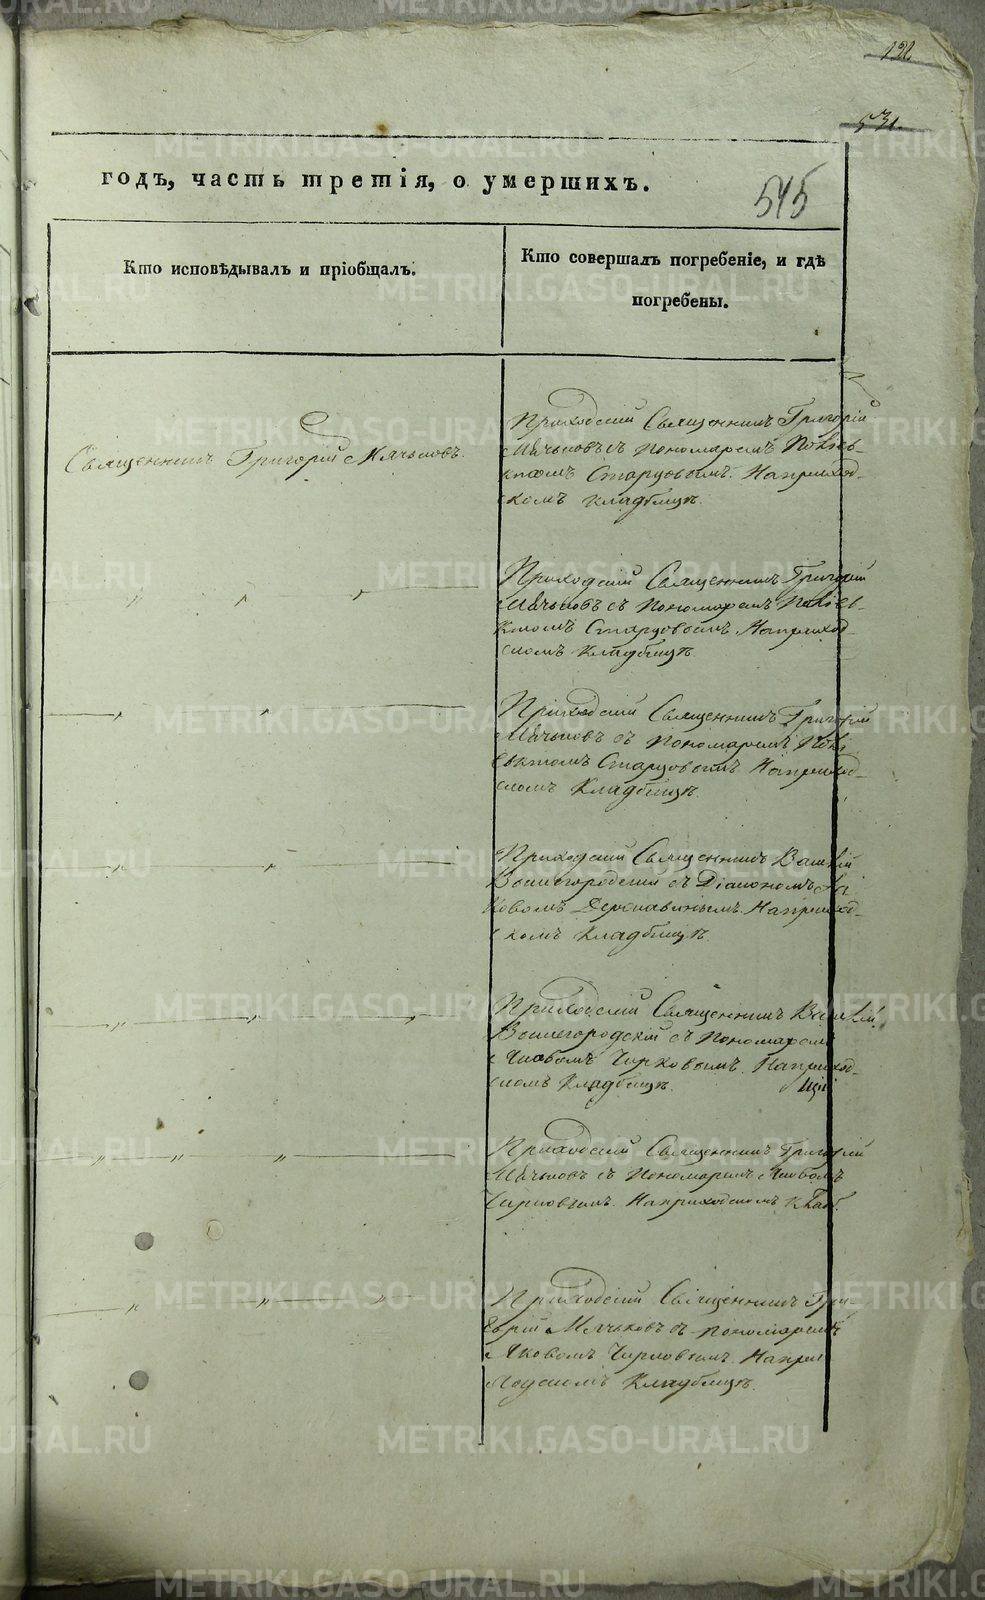 121
531.
годъ, часть третія, о умершихъ.
545
Кто исповѣдывалъ и пріобщалъ.
Кто совершалъ погребеніе, и гдѣ
погребены.
Священникъ Григорій Мячковъ.
Приходскій Священникъ Григорій
Мячковъ съ Пономаремъ
Старцовымъ. На приход-
скомъ кладбищѣ.
Приходскій Священникъ Григорій
Мячковъ съ Пономаремъ
Старцовымъ. На приход-
скомъ Кладбищѣ.
Приходскій Священникъ Григорій
Мячковъ съ Пономаремъ
Старцовымъ. На приход-
скомъ Кладбищѣ.
Приходскій Священникъ Василій
Вышегородскій съ Діакономъ Іа-
ковомъ Державинымъ. На приход-
скомъ Кладбищѣ.
Приходскій Священникъ Василій
Вышегородскій съ Пономаремъ
Яковомъ Чирковымъ. На приход-
скомъ Кладбищѣ.
Приходскій Священникъ Григорій
Мячковъ съ Пономаремъ Яковомъ
Чирковымъ. На приходскомъ Клад.
Приходскій Священникъ Гри-
горій Мячковъ съ Пономаремъ
Яковомъ Чирковымъ. На при-
ходскомъ Кладбищѣ.
METRIKI.GASO-URAL.RU